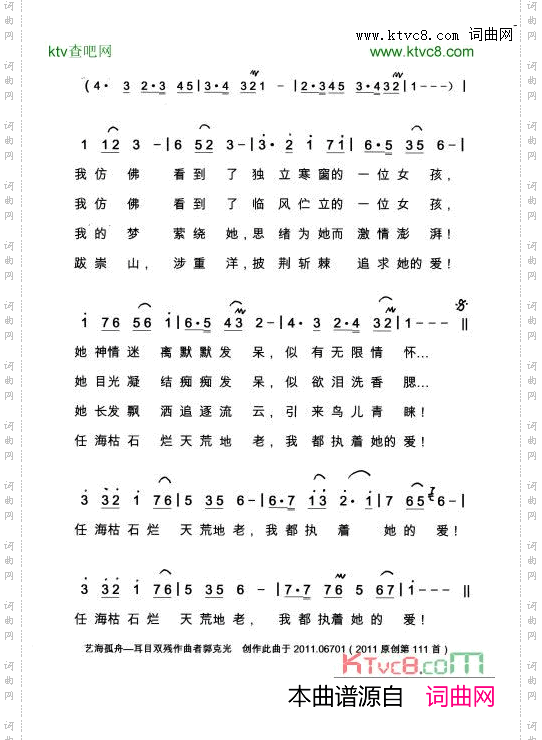 www.ktvc8.com 词曲网
ktv查吧网
www.ktvc8.com
(4· 3 2·3 45|3·4 321 -|2·345 3·432|1---)|
1 12 3-|6 52 3-|3· 2 1 71|6·5 35 6-|
我仿佛 看到了独立寒窗的一位女孩，
我仿佛 看到了临风伫立的一位女孩，
我的梦 萦绕她，思绪为她而激情澎湃！
跋崇山，涉重洋，披荆斩棘 追求她的爱！
1 76 56 1|6·5 43 2-|4· 3 2·4 32|1---‖
她神情迷离默默发呆，似有无限情怀…
她目光凝结痴痴发呆，似欲泪洗香腮…
她长发飘洒追逐流云，引来鸟儿青睐！
任海枯石烂天荒地老，我都执着她的爱！
3 32 1 76|5 35 6-|6·7 13 2·1|7 65 6-|
任海枯石烂 天荒地老，我都执着 她的爱！
3 32 1 76|5 35 6-|7·7 76 5 67|1---‖
任海枯石烂 天荒地老， 我都执着她的爱！
艺海孤舟—耳目双残作曲者郭克光 创作此曲于 2011.06701 ( 2011 原创第 111 首 )
KTvc8.com
本曲谱源自 词曲网